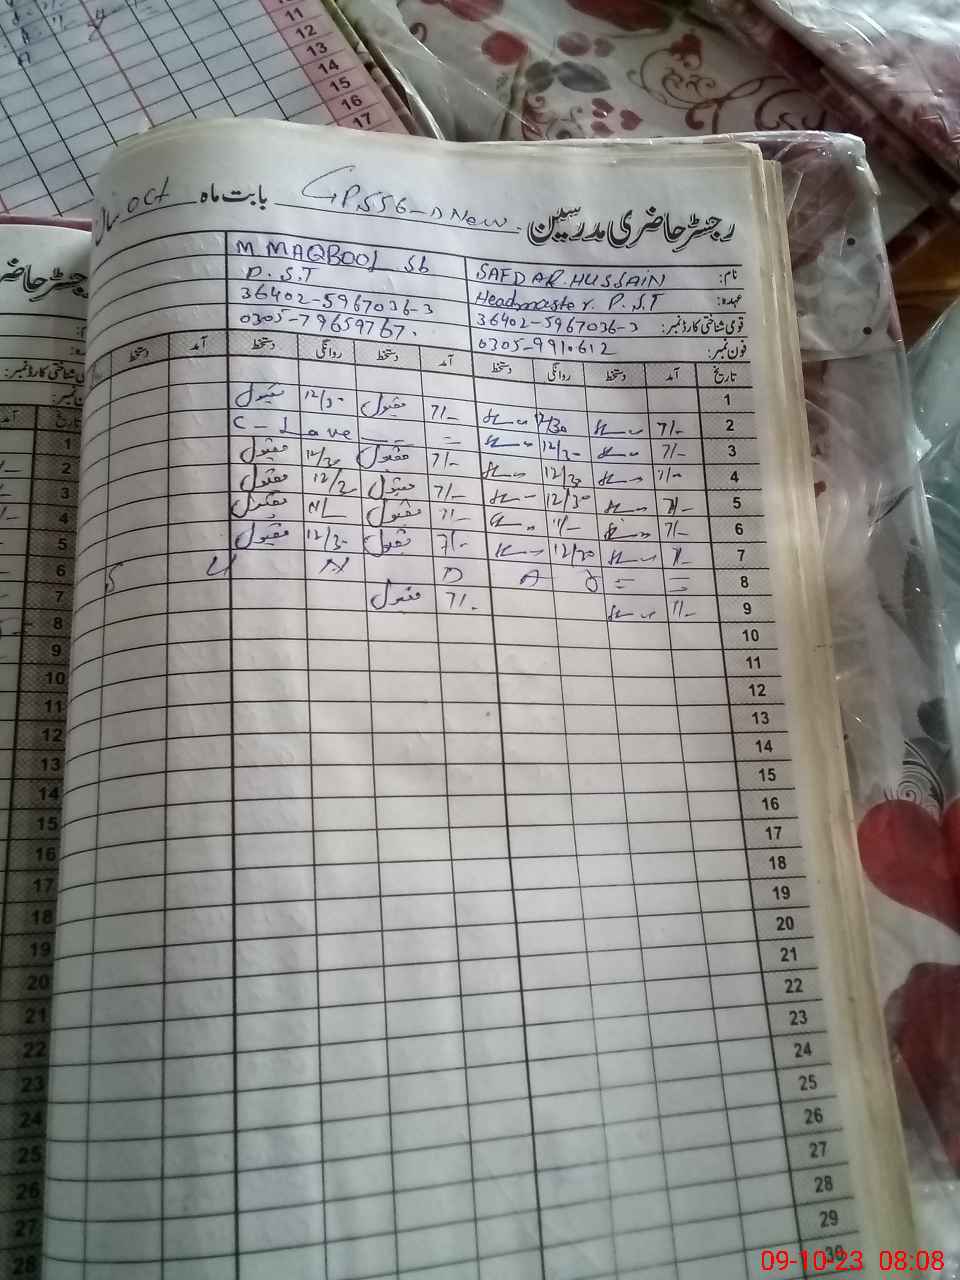 11
12
13
14
15
16
17
رجسٹر حاضری مدرسین GPS 556-D New بابت ماہ Oct سال
نام: SAFDAR HUSSAIN M MAQBOOL Sb
عہدہ: Headmaster. P.S.T P.S.T
قومی شناختی کارڈ نمبر: 36402-5967036-3 36402-5967036-3
فون نمبر: 0305-9910612 0305-79659767.
تاریخ آمد دستخط روانگی دستخط آمد دستخط روانگی دستخط آمد دستخط
1
2 7/- 12/30 7/- مقبول 12/30 مقبول
3 7/- 12/30 = C-Lave
4 7/- 12/30 7/- مقبول 12/30 مقبول
5 7/- 12/30 7/- مقبول 12/30 مقبول
6 7/- 11/- 7/- مقبول 11/- مقبول
7 7/- 12/30 7/- مقبول 12/30 مقبول
8 = = S U N D A Y
9 7/- 7/- مقبول
10
11
12
13
14
15
16
17
18
19
20
21
22
23
24
25
26
27
28
29
30
رجسٹر حاضر
قومی شناختی کارڈ نمبر:
تاریخ آمد
1
2
3
4
5
6
7
8
9
10
11
12
13
14
15
16
17
18
19
20
21
22
23
24
25
26
27
28
09-10-23 08:08